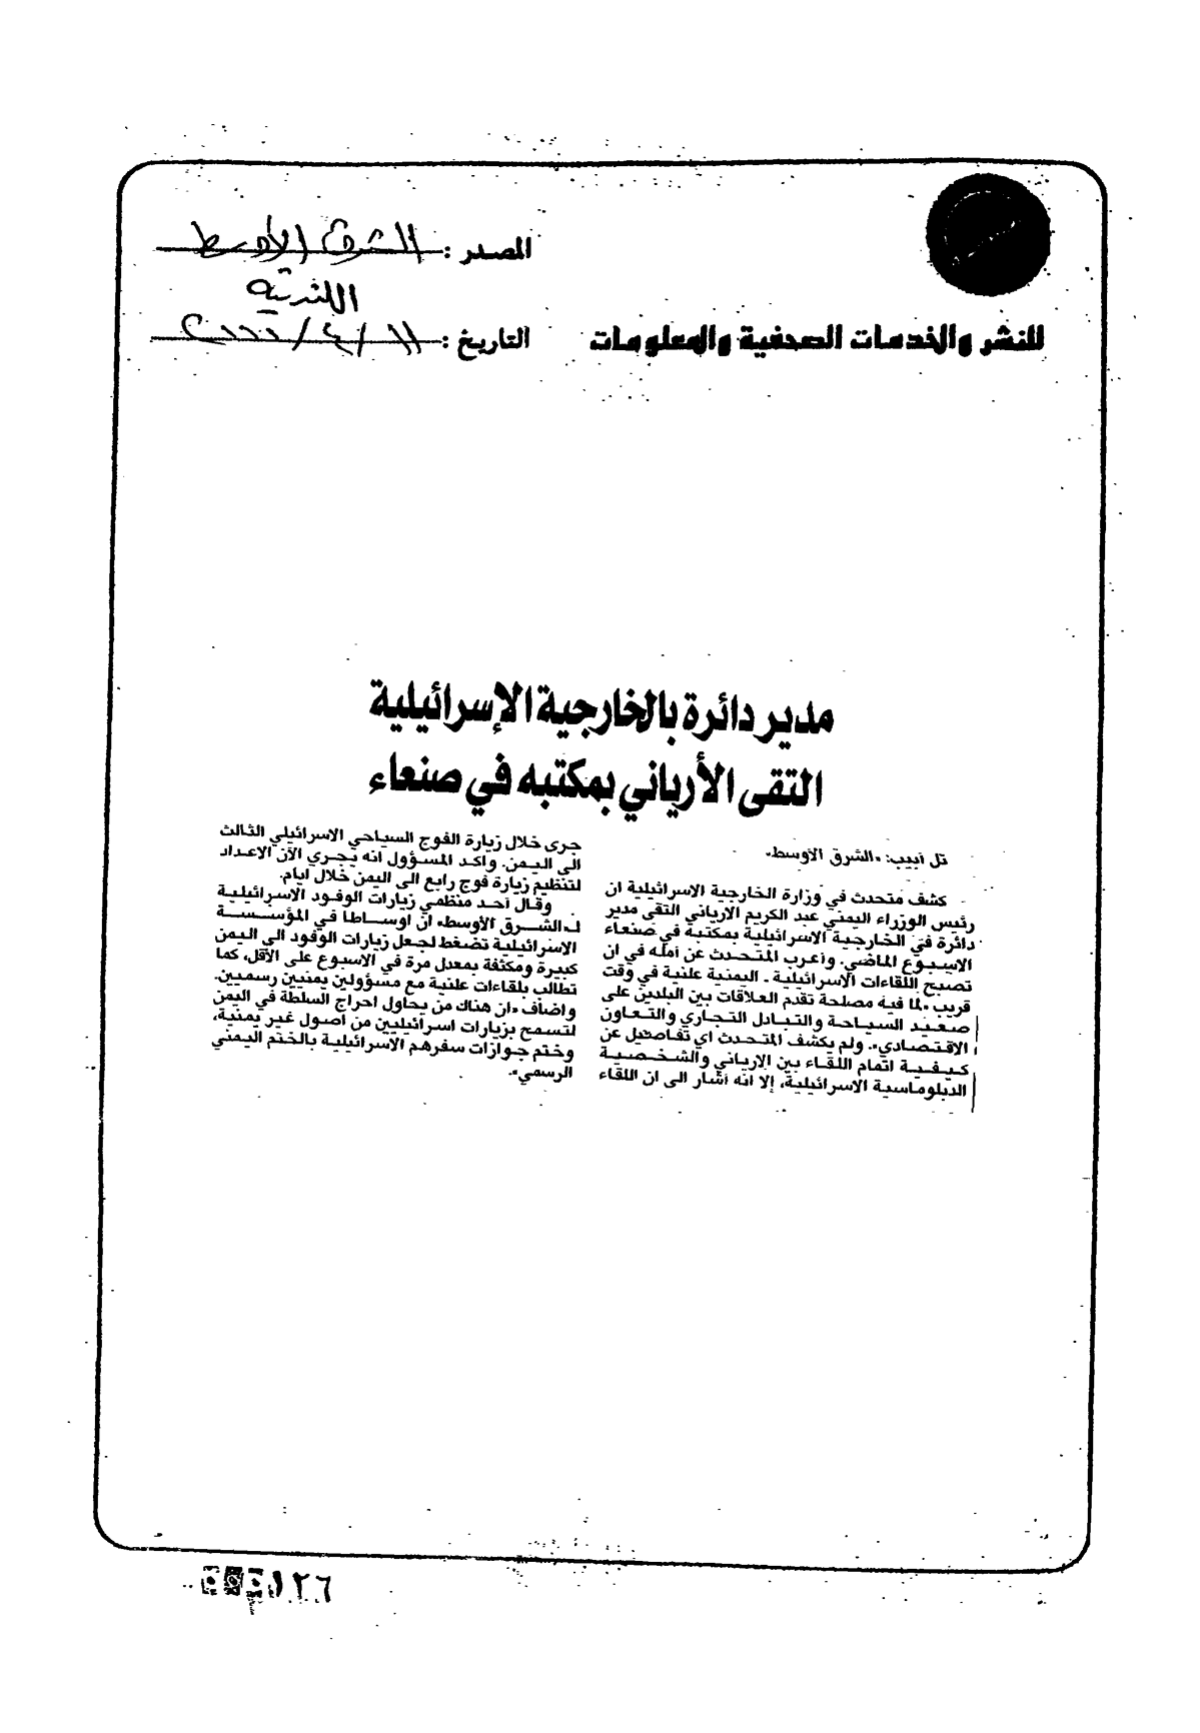 المصدر : الشرق الأوسط
اللندنية
للنشر والخدمات الصحفية والمعلومات
التاريخ : ١١ / ٤ / ٢٠٠٠
مدير دائرة بالخارجية الإسرائيلية
التقى الأرياني بمكتبه في صنعاء
تل أبيب: «الشرق الأوسط»
كشف متحدث في وزارة الخارجية الاسرائيلية ان
رئيس الوزراء اليمني عبد الكريم الارياني التقى مدير
دائرة في الخارجية الاسرائيلية بمكتبه في صنعاء
الاسبوع الماضي. وأعرب المتحدث عن أمله في ان
تصبح اللقاءات الاسرائيلية ـ اليمنية علنية في وقت
قريب «لما فيه مصلحة تقدم العلاقات بين البلدين على
صعيد السياحة والتبادل التجاري والتعاون
الاقتصادي». ولم يكشف المتحدث اي تفاصيل عن
كيفية اتمام اللقاء بين الارياني والشخصية
الدبلوماسية الاسرائيلية، إلا انه أشار الى ان اللقاء
جرى خلال زيارة الفوج السياحي الاسرائيلي الثالث
الى اليمن. واكد المسؤول انه يجري الآن الاعداد
لتنظيم زيارة فوج رابع الى اليمن خلال ايام.
وقال أحد منظمي زيارات الوفود الاسرائيلية
لـ«الشرق الأوسط» ان اوساطا في المؤسسة
الاسرائيلية تضغط لجعل زيارات الوفود الى اليمن
كبيرة ومكثفة بمعدل مرة في الاسبوع على الأقل، كما
تطالب بلقاءات علنية مع مسؤولين يمنيين رسميين.
واضاف «ان هناك من يحاول احراج السلطة في اليمن
لتسمح بزيارات اسرائيليين من أصول غير يمنية،
وختم جوازات سفرهم الاسرائيلية بالختم اليمني
الرسمي».
١٢٦